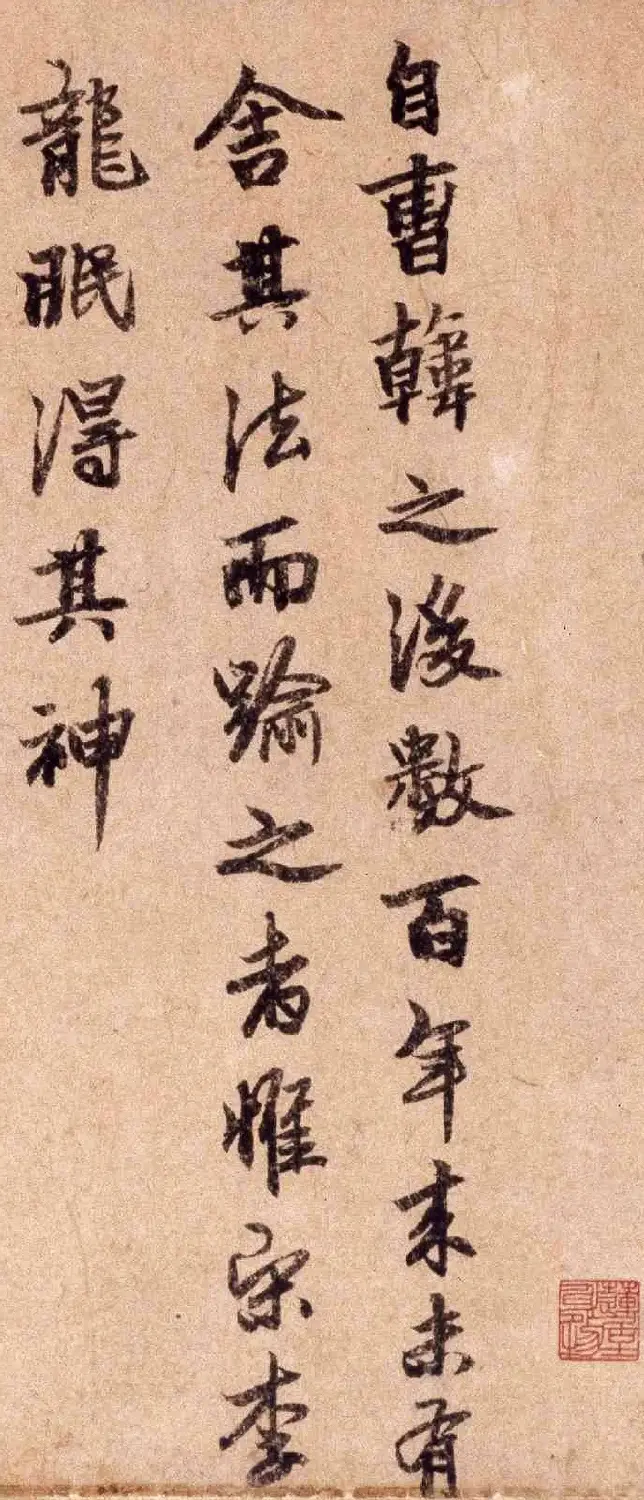 自曹韓之後數百年來未有
舍其法而踰之者惟宋李
龍眠得其神